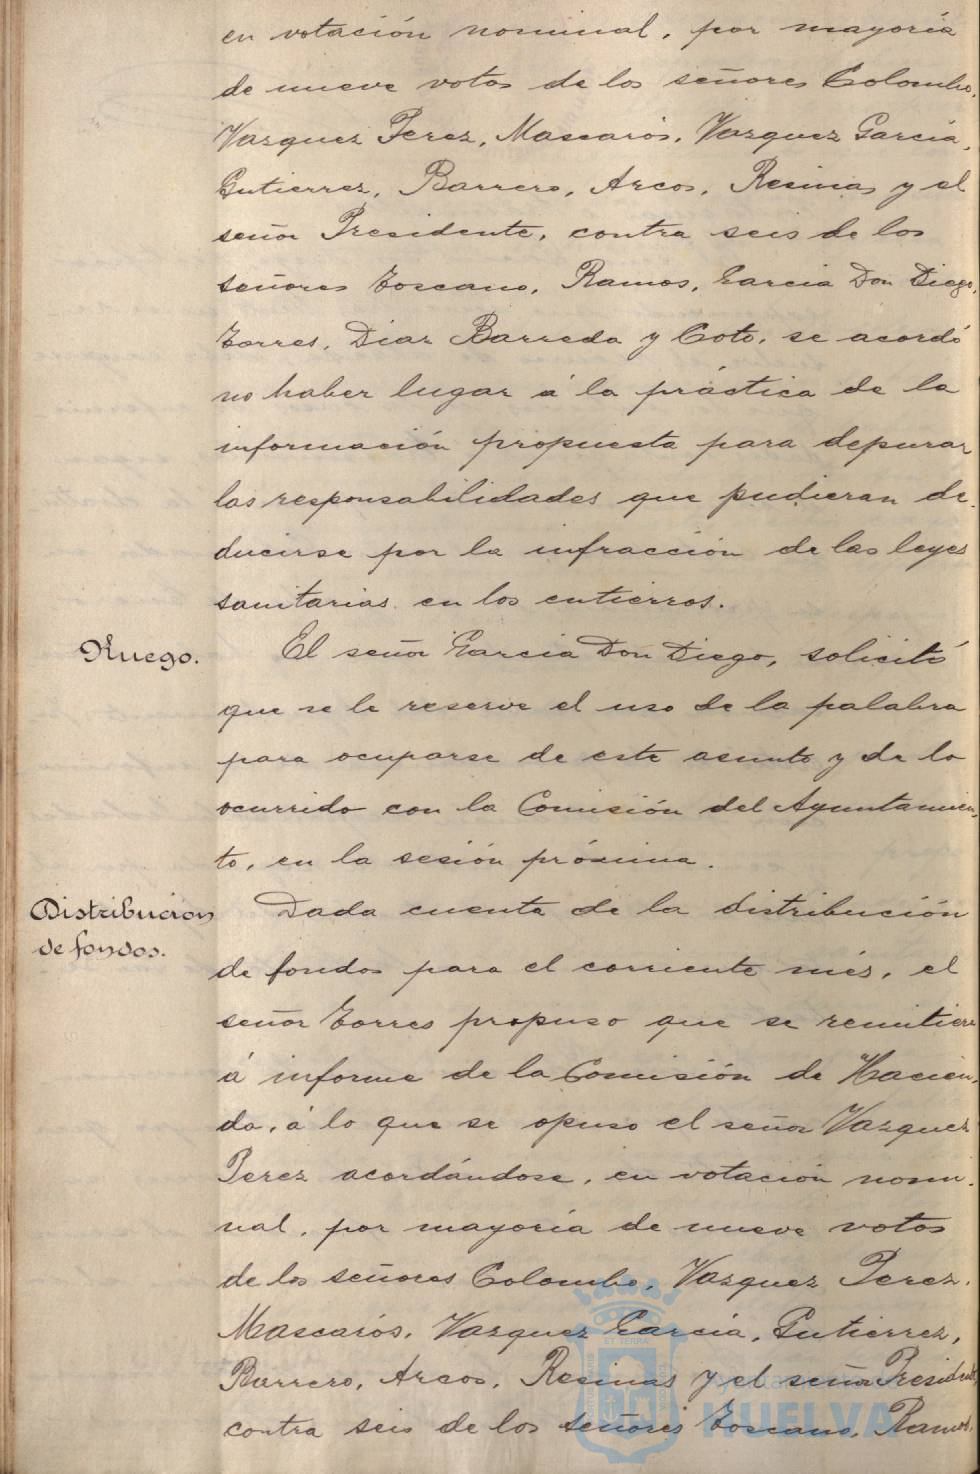 en votación nominal, por mayoría
de nueve votos de los señores Colombo,
Vazquez Perez, Mascarós, Vazquez García,
Gutierrez, Barrero, Arcos, Resinas y el
señor Presidente, contra seis de los
señores Toscano, Ramos, Garcia Don Diego,
Torres, Diaz Barreda y Coto, se acordó
no haber lugar á la práctica de la
información propuesta para depurar
las responsabilidades que pudieran de-
ducirse por la infracción de las leyes
sanitarias en los entierros.
Ruego.
El señor Garcia Don Diego, solicitó
que se le reserve el uso de la palabra
para ocuparse de este asunto y de lo
ocurrido con la Comisión del Ayuntamien-
to, en la sesión próxima.
Distribucion
de fondos.
Dada cuenta de la distribución
de fondos para el corriente més, el
señor Torres propuso que se remitiera
á informe de la Comisión de Hacien-
da, á lo que se opuso el señor Vazquez
Perez acordándose, en votación nomi-
nal, por mayoría de nueve votos
de los señores Colombo, Vazquez Perez,
Mascarós, Vazquez García, Gutierrez,
Barrero, Arcos, Resinas y el señor Presidente,
contra seis de los señores Toscano, Ramos,
HUELVA